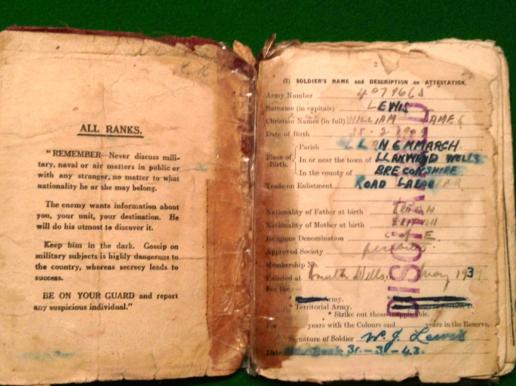 ALL RANKS.
"REMEMBER—Never discuss mili-
tary, naval or air matters in public or
with any stranger, no matter to what
nationality he or she may belong.
The enemy wants information about
you, your unit, your destination. He
will do his utmost to discover it.
Keep him in the dark. Gossip on
military subjects is highly dangerous to
the country, whereas secrecy leads to
success.
BE ON YOUR GUARD and report
any suspicious individual."
2
(I) SOLDIER'S NAME and DESCRIPTION on ATTESTATION.
Army Number
Surname (in capitals) LEWIS
Christian Names (in full) WILLIAM JAMES
Date of Birth
Place of Birth.
Parish
In or near the town of LLANWRTYD WELLS
In the county of BRECONSHIRE
Trade on Enlistment ROAD
Nationality of Father at birth
Nationality of Mother at birth
Religious Denomination C of E
Approved Society
Membership No.
Enlisted at Wells
For the:—
* Army.
* Territorial Army.
* Strike out those inapplicable.
For years with the Colours and years in the Reserve.
Signature of Soldier W. J. Lewis
Date 31-3-43
DISCHARGED